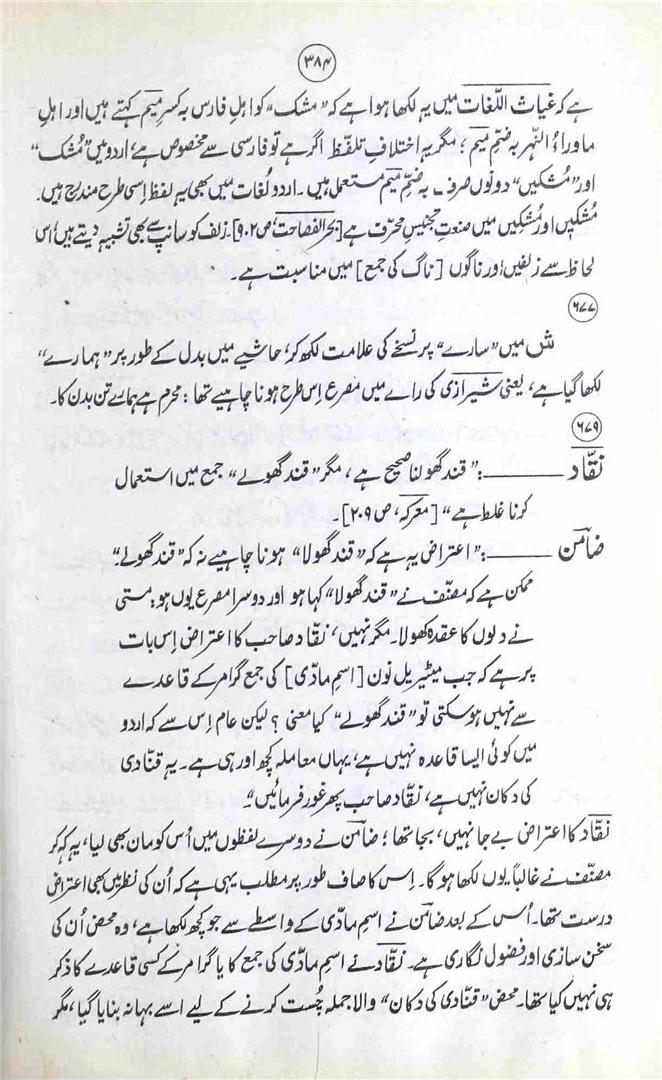 ۳۸۴
ہے کہ غیاث اللّغات میں یہ لکھا ہوا ہے کہ "مشک" کو اہلِ فارس بہ کسرِ میم کہتے ہیں اور اہلِ
ماوراءُ النّہر بہ ضمِّ میم ؛ مگر یہ اختلافِ تلفّظ اگر ہے تو فارسی سے مخصوص ہے، اردو میں "مُشک"
اور "مُشکیں" دونوں صرف ۔ بہ ضمِّ میم مستعمل ہیں ۔ اردو لُغات میں بھی یہ لفظ اِسی طرح مندرج ہیں.
مُشکیں اور مُشکِیں میں صنعتِ تجنیسِ محرّف ہے [بحر الفصاحت، ص ۹۰۲]۔ زلف کو سانپ سے بھی تشبیہ دیتے ہیں اُس
لحاظ سے زلفیں اور ناگوں [ناگ کی جمع] میں مناسبت ہے ۔
۶۷۷
ش میں "سارے" پر نسخے کی علامت لکھ کر، حاشیے میں بدل کے طور پر "ہمارے"
لکھا گیا ہے، یعنی شیرازی کی راے میں مصرع اِس طرح ہونا چاہیے تھا : محرم ہے ہمارے تن بدن کا۔
۶۷۹
نقّاد ــــــــــ :" قند گھولنا صحیح ہے ، مگر "قند گھولے" جمع میں استعمال
کرنا غلط ہے" [معرکہ، ص ۲۰۹]۔
ضامن ــــــــــ :" اعتراض یہ ہے کہ "قند گھولا" ہونا چاہیے نہ کہ "قند گھولے"۔
ممکن ہے کہ مصنّف نے "قند گھولا" کہا ہو اور دوسرا مصرع یوں ہو: مستی
نے دلوں کا عقدہ کھولا۔ مگر نہیں، نقّاد صاحب کا اعتراض اِس بات
پر ہے کہ جب میٹیریل نون [اسمِ مادّی] کی جمع گرامر کے قاعدے
سے نہیں ہو سکتی تو "قند گھولے" کیا معنی ؟ لیکن عام اِس سے کہ اردو
میں کوئی ایسا قاعدہ نہیں ہے، یہاں معاملہ کچھ اور ہی ہے ۔ یہ قنّادی
کی دکان نہیں ہے، نقّاد صاحب پھر غور فرمائیں"۔
نقّاد کا اعتراض بے جا نہیں، بجا تھا ؛ ضامن نے دوسرے لفظوں میں اُس کو مان بھی لیا، یہ کہہ کر
مصنّف نے غالباً یوں لکھا ہوگا۔ اِس کا صاف طور پر مطلب یہی ہے کہ اُن کی نظر میں بھی اعتراض
درست تھا۔ اُس کے بعد ضامن نے اسمِ مادّی کے واسطے سے جو کچھ لکھا ہے، وہ محض اُن کی
سخن سازی اور فضول نگاری ہے۔ نقّاد نے اسمِ مادّی کی جمع کا یا گرامر کے کسی قاعدے کا ذکر
ہی نہیں کیا تھا۔ محض "قنّادی کی دکان" والا جملہ چُست کرنے کے لیے اسے بہانہ بنایا گیا ، مگر